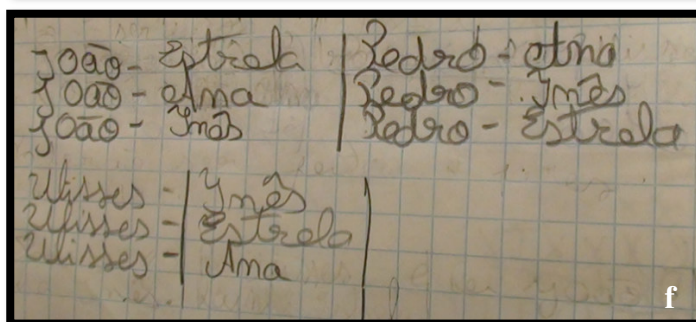 João - Estrela
João - Ana
João - Ynês
Pedro - Ana
Pedro - Ynês
Pedro - Estrela
Ulisses - Ynês
Ulisses - Estrela
Ulisses - Ana
f